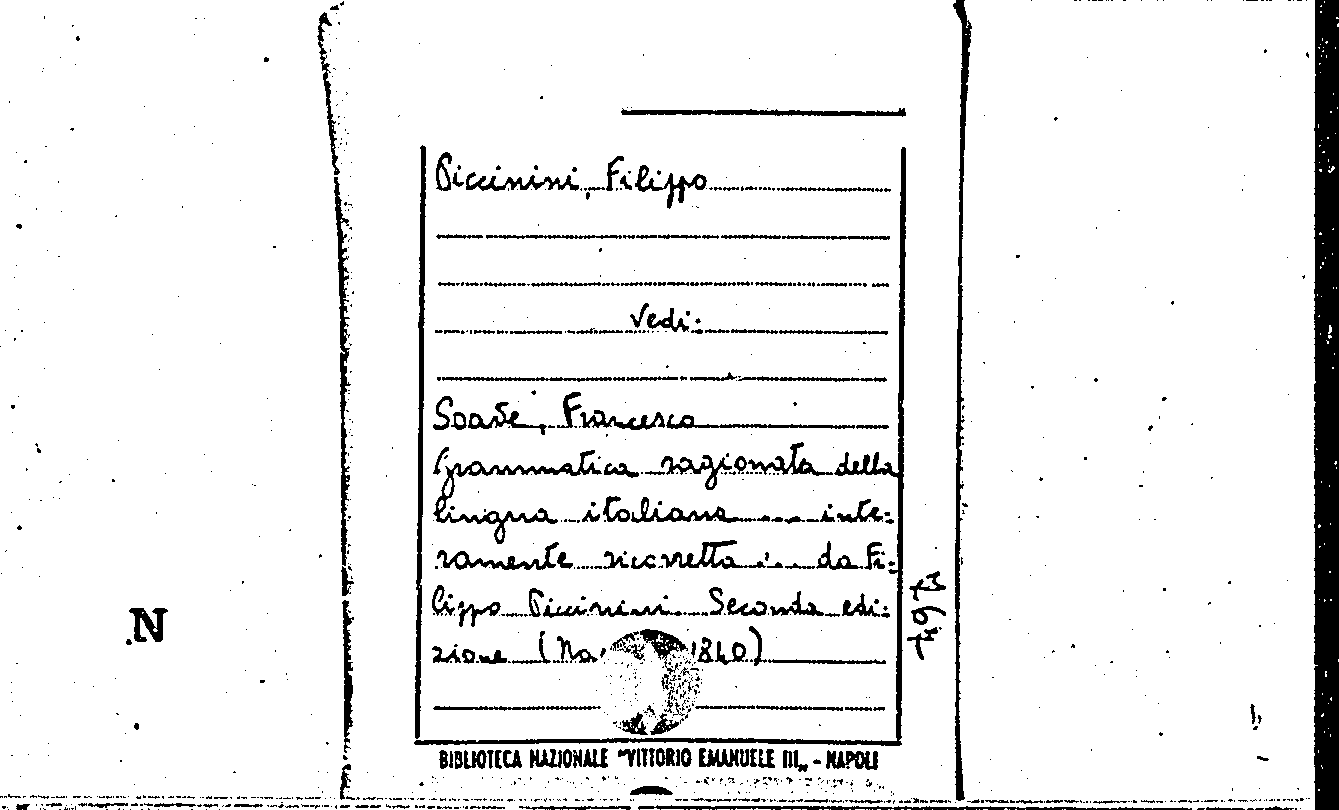 Piccinini, Filippo
Vedi:
Soave, Francesco
Grammatica ragionata della
lingua italiana ... inte:
ramente ricorretta ... da Fi:
lippo Piccinini. Seconda edi:
zione (Na 1840)
BIBLIOTECA NAZIONALE "VITTORIO EMANUELE III„ - NAPOLI
N